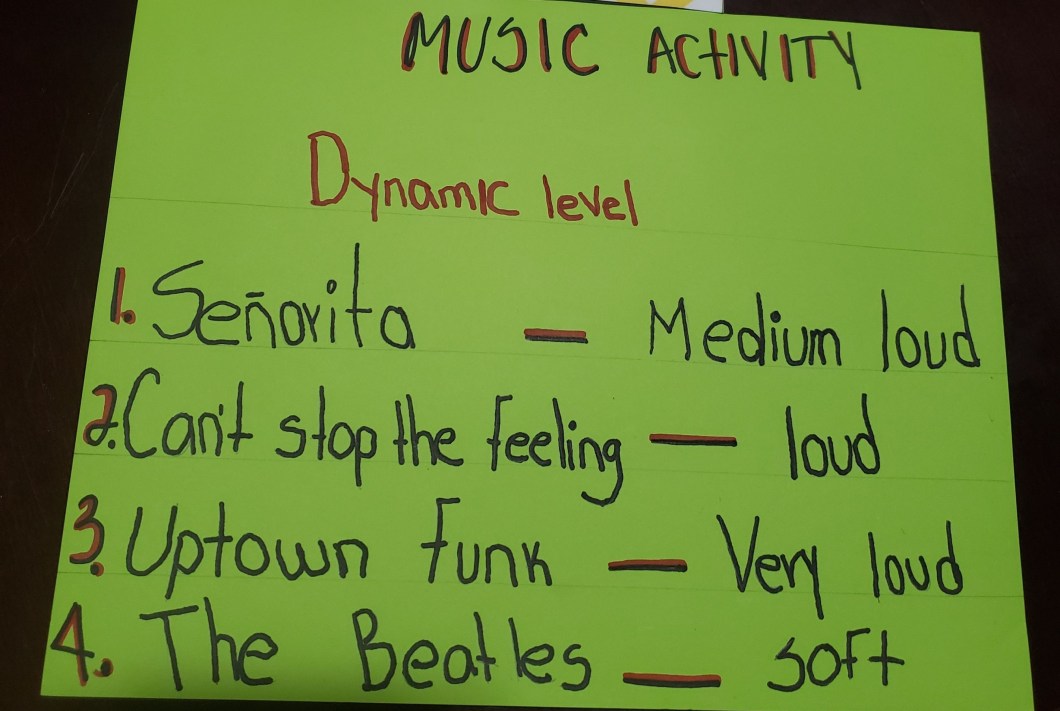 MUSIC ACTIVITY
Dynamic level
1. Señorita — Medium loud
2. Can't stop the feeling — loud
3. Uptown funk — Very loud
4. The Beatles — soft